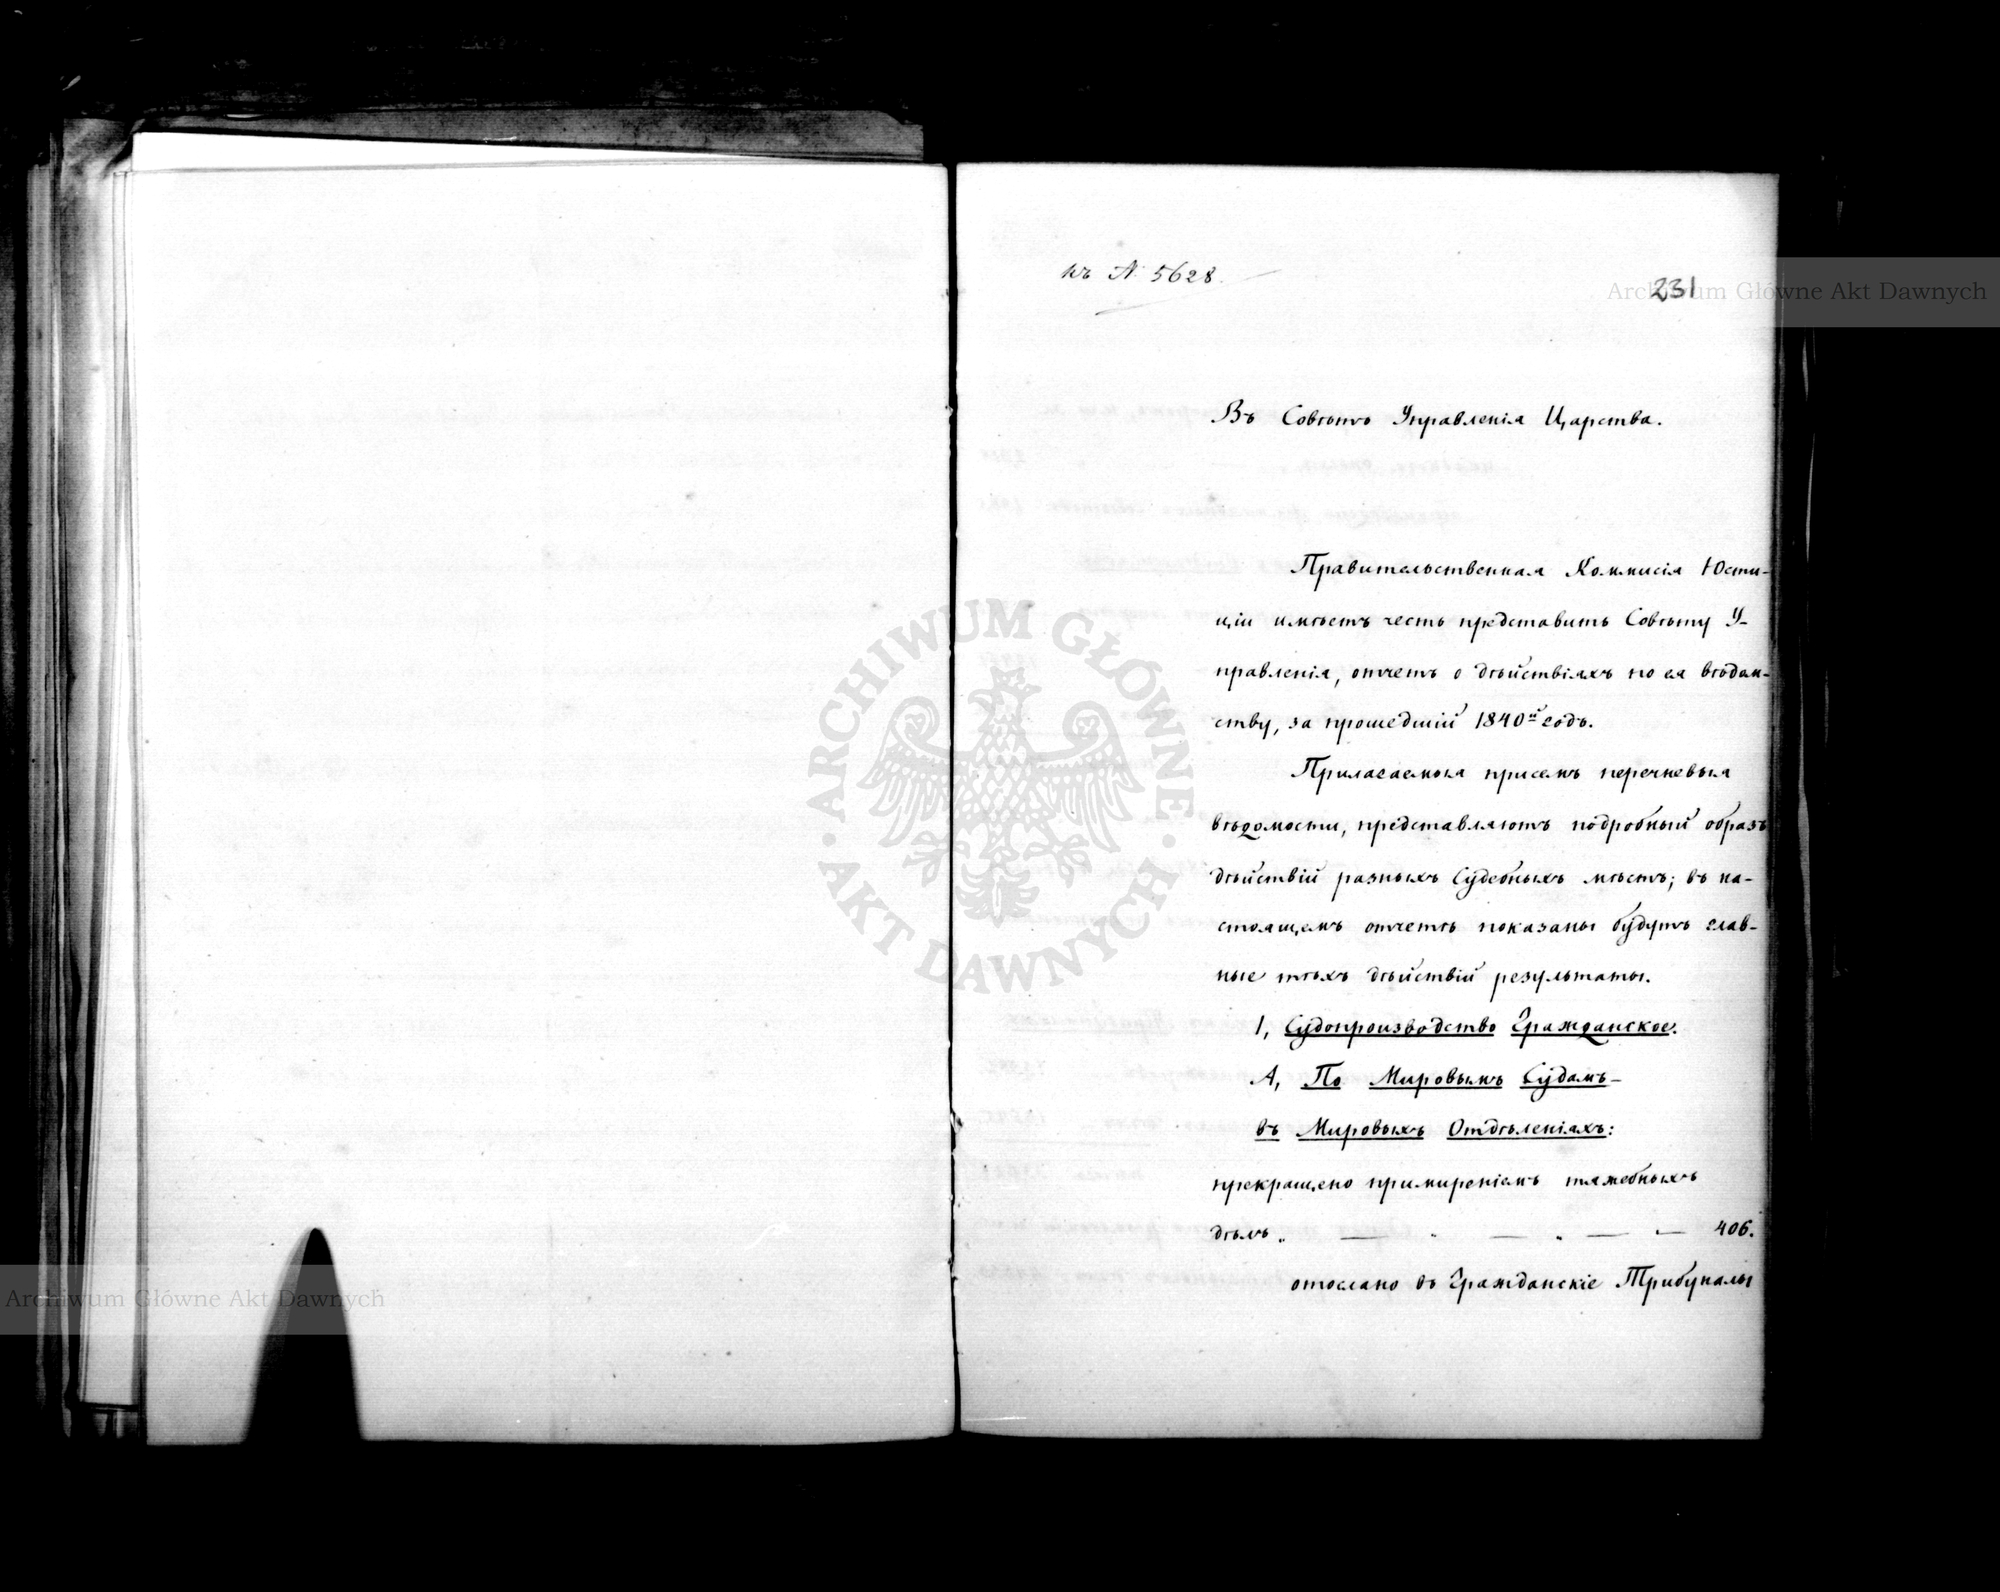 къ № 5628.
231
Въ Совѣтъ Управленія Царства.
Правительственная Коммисія Юсти-
ціи имѣетъ честь представить Совѣту У-
правленія, отчетъ о дѣйствіяхъ по ея вѣдом-
ству, за прошедшій 1840й годъ.
Прилагаемыя присемъ перечневыя
вѣдомости, представляютъ подробный образъ
дѣйствій разныхъ Судебныхъ мѣстъ; въ на-
стоящемъ отчетѣ показаны будутъ глав-
ные тѣхъ дѣйствій результаты.
1, Судопроизводство Гражданское.
А, По Мировымъ Судамъ-
въ Мировыхъ Отдѣленіяхъ:
прекращено примиреніемъ тяжебныхъ
дѣлъ „ — „ — „ — — 406.
отослано въ Гражданскіе Трибуналы
Archiwum Główne Akt Dawnych
ARCHIWUM GŁÓWNE · AKT DAWNYCH ·
Archiwum Główne Akt Dawnych